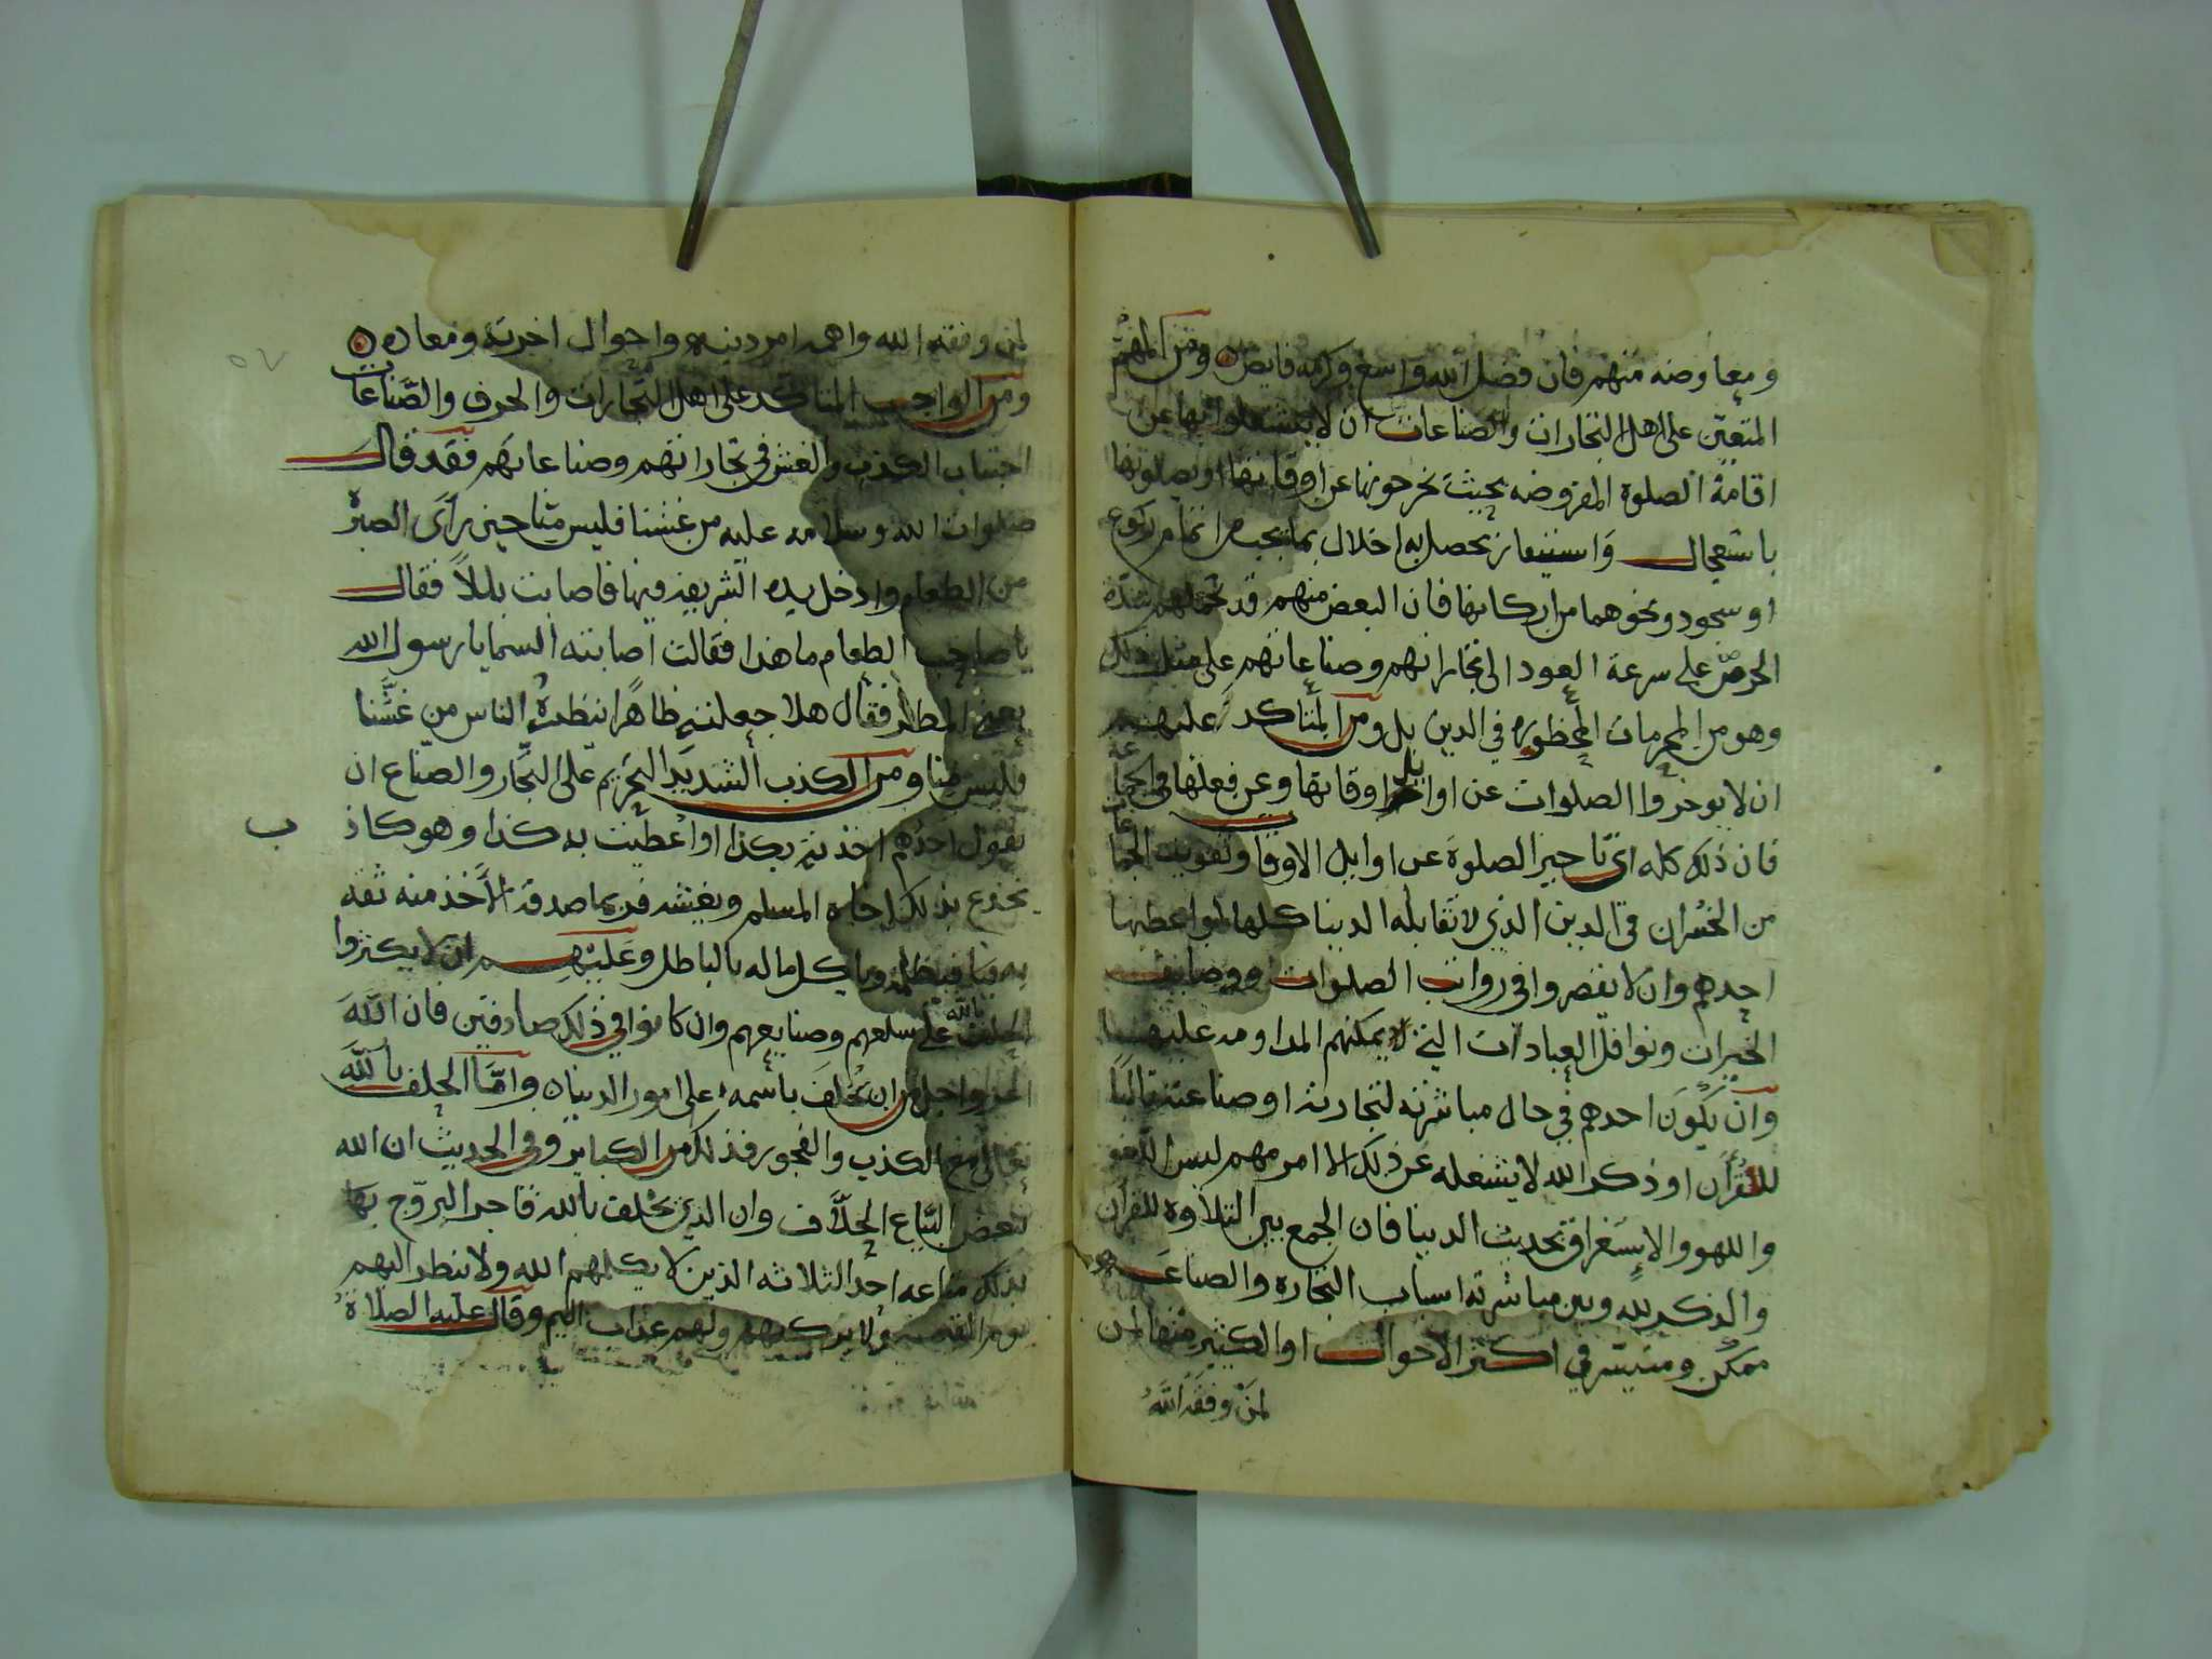 ومعاوضه منهم فان فضل الله واسع وكرمه فايض ومن المهم
المتعين على اهل التجارات والصناعات ان لا يشتغلوا بها عن
اقامة الصلوة المفروضه بحيث يخرجونها عن اوقاتها او يصلونها
باستعجال واستيفاز يحصل به اخلال بما يجب من اتمام ركوع
او سجود ونحوهما من اركانها فان البعض منهم قد تحملهم شدة
الحرص على سرعة العود الى تجاراتهم وصناعاتهم على مثل ذلك
وهو من المحرمات المحظوره في الدين بل ومن المتأكد عليهم
ان لا يوخروا الصلوات عن اوايل اوقاتها وعن فعلها في الجماعة
فان ذلك كله اي تاخير الصلوة عن اوايل الاوقات وتفويت الجماعة
من الخسران في الدين الذي لا تقابله الدنيا كلها لو اعطيها
احدهم وان لا يقصروا في رواتب الصلوات ووضايف
الخيرات ونوافل العبادات التي لا يمكنهم المداومه عليها
وان يكون احدهم في حال مباشرته لتجارته او صناعته تاليًا
للقرآن او ذكر الله لا يشغله عن ذلك الا امر مهم ليس اللغو
واللهو والاستغراق بحديث الدنيا فان الجمع بين التلاوة للقران
والذكر لله وبين مباشرته اسباب التجاره والصناعه
ممكن ومتيسر في اكثر الاحوال او الكثير منها لمن
لمن وفقه الله
لمن وفقه الله واهمه امر دينه واحوال اخرته ومعاده
ومن الواجب المتاكد على اهل التجارات والحرف والصناعات
اجتناب الكذب والغش في تجاراتهم وصناعاتهم فقد قال
صلوات الله وسلامه عليه من غشنا فليس منا حين رأى الصبرة
من الطعام وادخل يده الشريفه فيها فاصابت بللاً فقال
يا صاحب الطعام ما هذا فقالت اصابته السما يا رسول الله
يعني المطر فقال هلا جعلته ظاهرًا ينظره الناس من غشنا
فليس منا ومن الكذب الشديد التحريم على التجار والصناع ان
يقول احدهم اخذته بكذا او اعطيت به كذا وهو كاذ ب
يخدع بذلك اخاه المسلم ويغشه فربما صدقه الأخذ منه ثقه
به فيظلمه وياكل ماله بالباطل وعليهم ان لا يكثروا
الحلف بالله على سلعهم وصنايعهم وان كانوا في ذلك صادقين فان الله
اعز واجل من ان يحلف باسمه على امور الدنيا وامّا الحلف بالله
تعالى مع الكذب والفجور فذلك من الكباير وفي الحديث ان الله
يبغض البياع الحلّاف وان الذي يحلف بالله فاجرا ليروّج بها
بذلك متاعه احد الثلاثه الذين لا يكلمهم الله ولا ينظر اليهم
يوم القيمة ولا يزكيهم ولهم عذاب اليم وقال عليه الصلاة